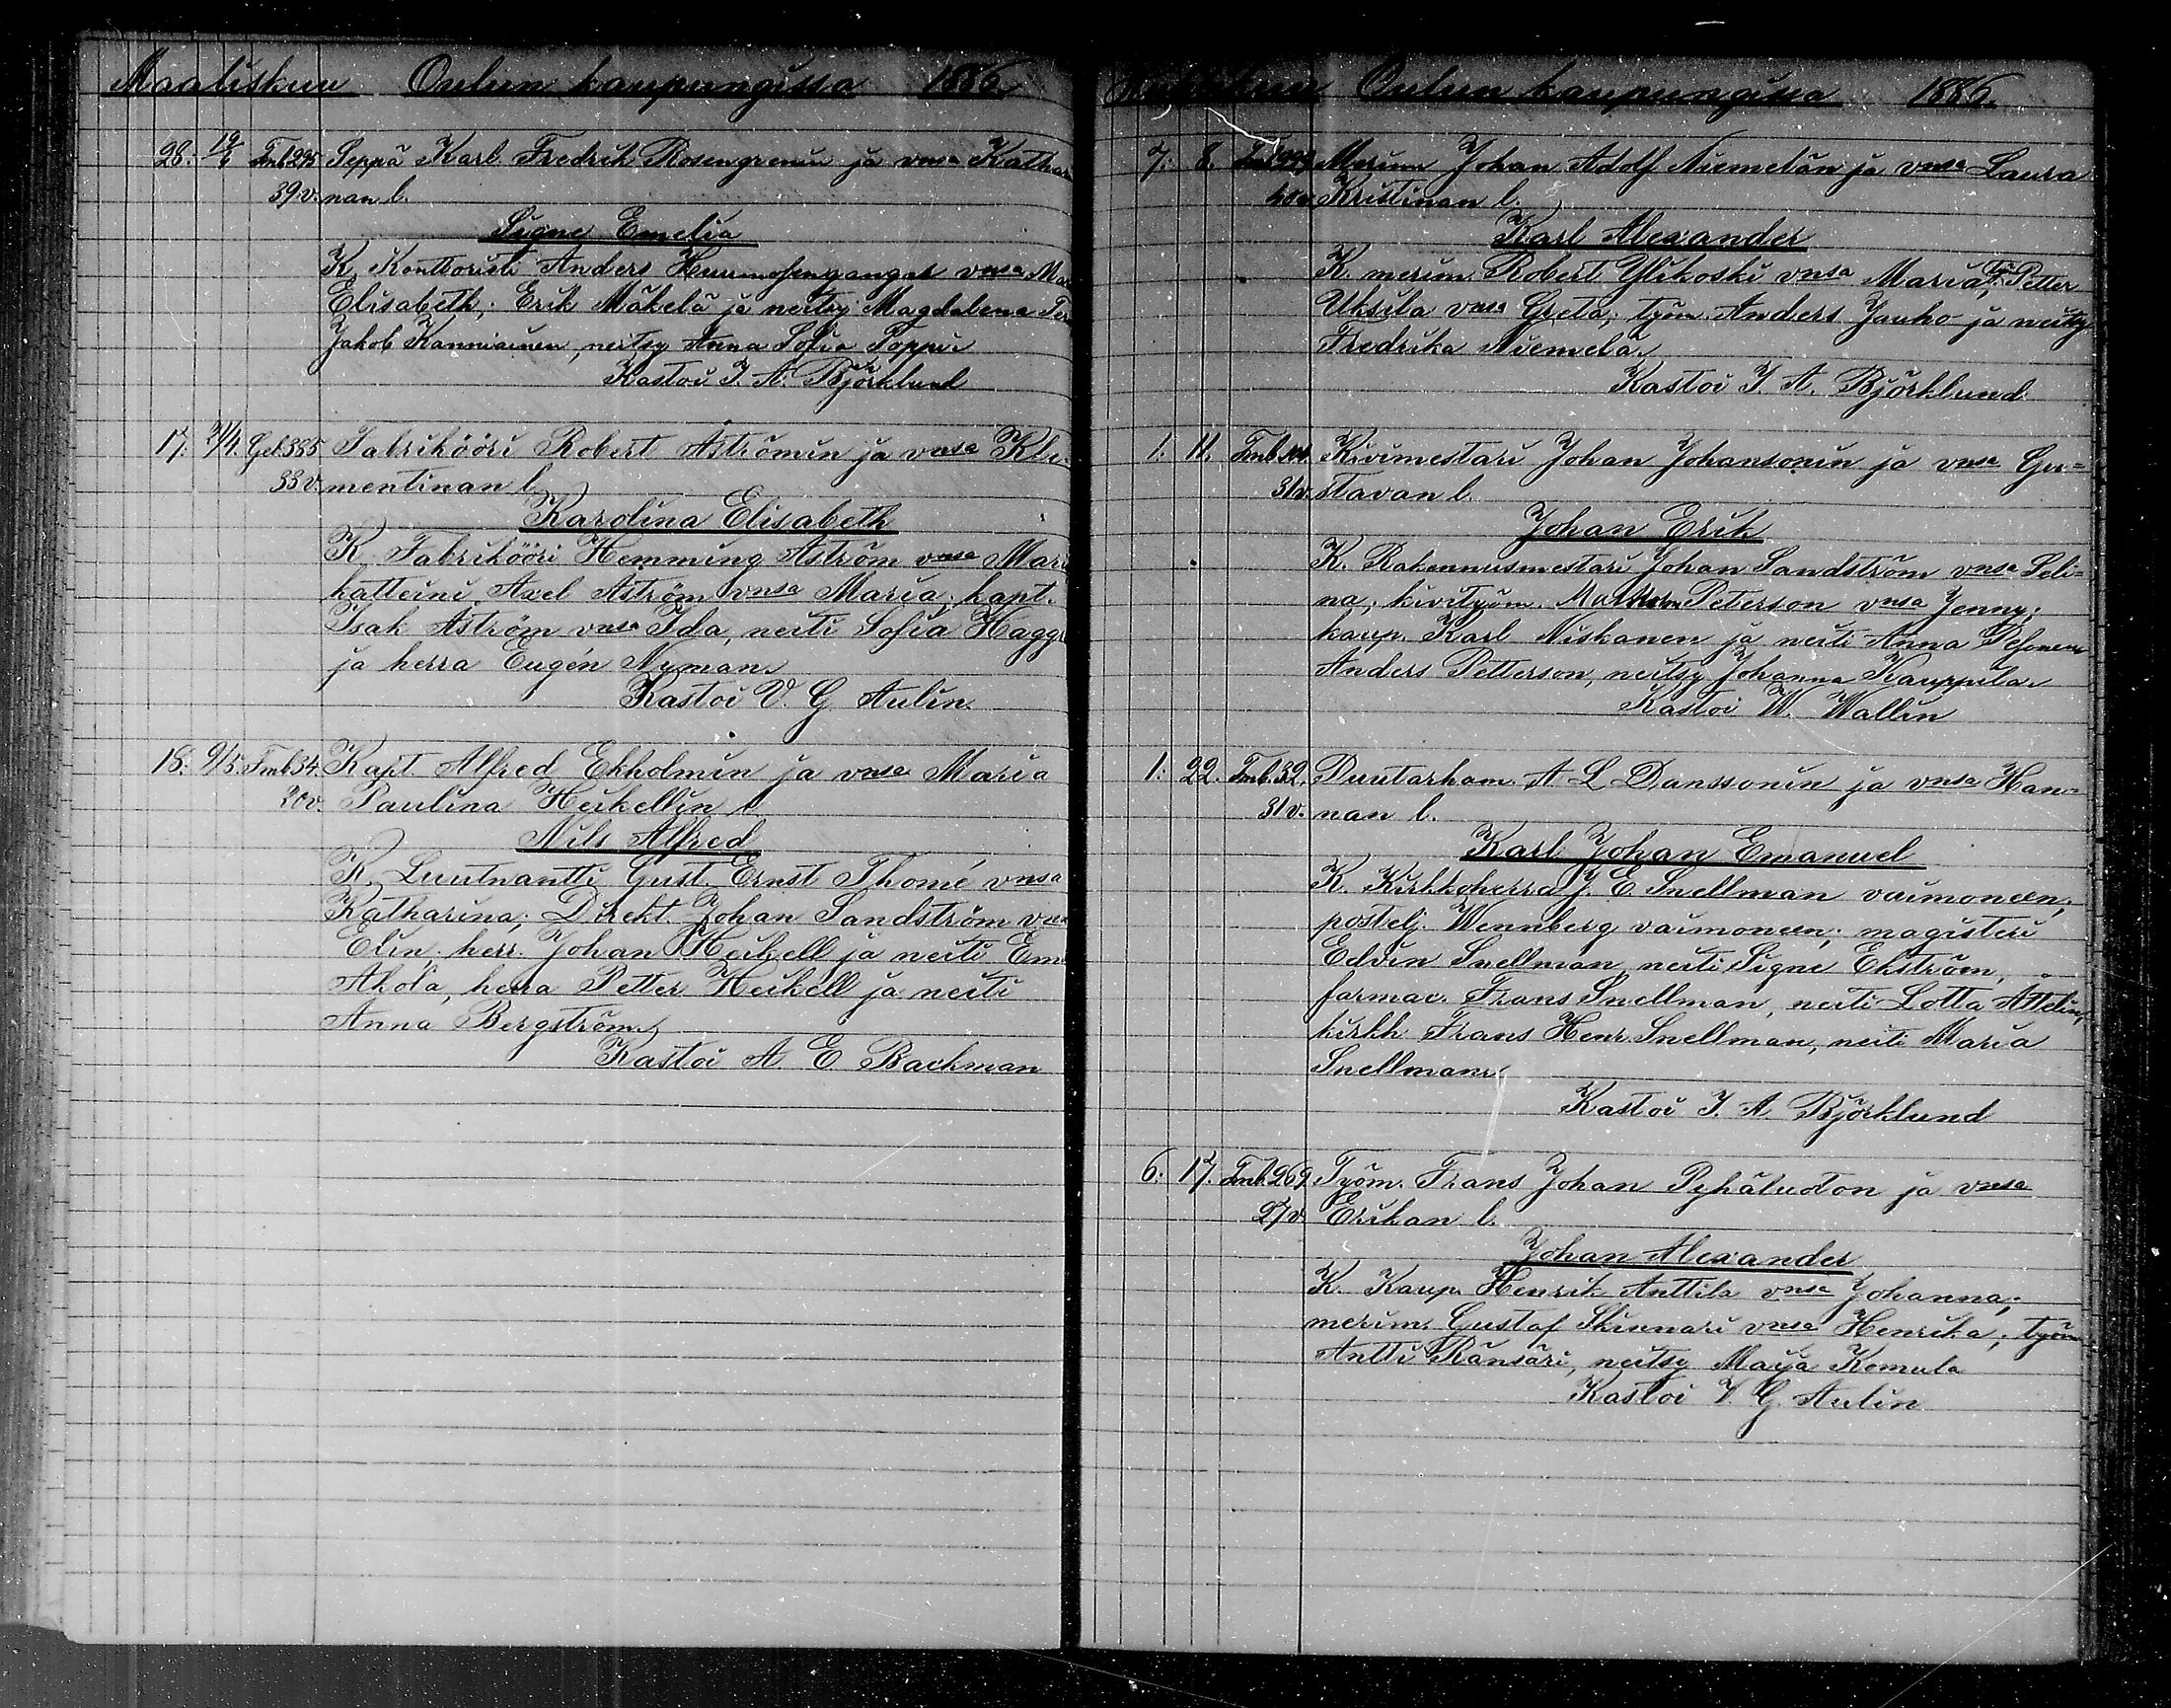 Maaliskuu Oulun kaupungissa 1886.
28. 19/6 Tmb.295 Seppä Karl Fredrik Rosengrenin ja vmsa Kathari
39v. nan l.
Signe Emelia
K. Konttoristi Anders vmsa Mar
Elisabeth; Erik Mäkelä ja neitsy Magdalena
Jakob Kanniainen, neitsy Anna Sofia Toppi
Kastoi J. A. Björklund
17. 2/4. Gel.385 Fabrikööri Robert Åströmin ja vmsa Kle-
33v. mentinan l.
Karolina Elisabeth
K. Fabrikööri Hemming Åström vmsa Mari
katteini Axel Åström vmsa Maria; kapt.
Isak Åström vmsa Ida, neiti Sofia Hagg
ja herra Eugén Nyman.
Kastoi V. G. Aulin.
18. 9/5. Tmb.34. Kapt. Alfred Ekholmin ja vmsa Maria
20v. Paulina Heikellin l.
Nils Alfred
K. Luutnantti Gust. Ernst Thomé vmsa
Katharina; Direkt. Johan Sandström vmsa
Elin; herr. Johan Heikell ja neiti Em
Ahola, herra Petter Heikell ja neiti
Anna Bergström.
Kastoi A. E. Backman
Oulun kaupungissa 1886.
7. 8. Merim. Johan Adolf Niemelän ja vmsa Laura
40v. Kristinan l.
Karl Alexander
K. merim. Robert Ylikoski vmsa Maria; Petter
Uksila vmsa Greta; työm. Anders Jauho ja neitsy
Fredrika Niemelä.
Kastoi J. A. Björklund
1. 11. Kivimestari Johan Johansonin ja vmsa Gu=
31v. stavan l.
Johan Erik
K. Rakennusmestari Johan Sandström vmsa Seli=
na; kivityöm. Peterson vmsa Jenny;
kaup. Karl Niskanen ja neiti Anna Pesonen
Anders Petterson, neitsy Johanna Kauppila
Kastoi W. Wallin
1. 22. Tmb.32. Puutarham. A. L. Danssonin ja vmsa Han=
31v. nan l.
Karl Johan Emanuel
K. Kirkkoherra J. E. Snellman vaimoneen;
postelj. Wennberg vaimoneen; magisteri
Edvin Snellman, neiti Signe Ekström,
farmac. Frans Snellman, neiti Lotta Attelin,
kirkh. Frans Henr. Snellman, neiti Maria
Snellman.
Kastoi J. A. Björklund
6. 17. Tmb.269. Työm. Frans Johan Pyhäluodon ja vmsa
27v. Erikan l.
Johan Alexander
K. Kaup. Henrik Anttila vmsa Johanna;
merim. Gustaf Skinnari vmsa Henrika; työm
Antti Ränsäri, neitsy Maija Komula
Kastoi V. G. Aulin